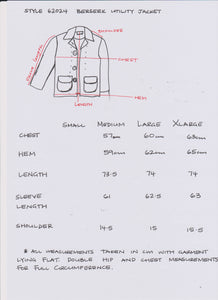 STYLE 62024 BERSERK UTILITY JACKET
SHOULDER
SLEEVE LENGTH
CHEST
HEM
LENGTH
SMALL MEDIUM LARGE XLARGE
CHEST 57cm 60cm 63cm
HEM 59cm 62cm 65cm
LENGTH 73.5 74 74
SLEEVE LENGTH 61 62.5 63
SHOULDER 14.5 15 15.5
* ALL MEASUREMENTS TAKEN IN CM WITH GARMENT
LYING FLAT. DOUBLE HIP AND CHEST MEASUREMENTS
FOR FULL CIRCUMFERENCE.